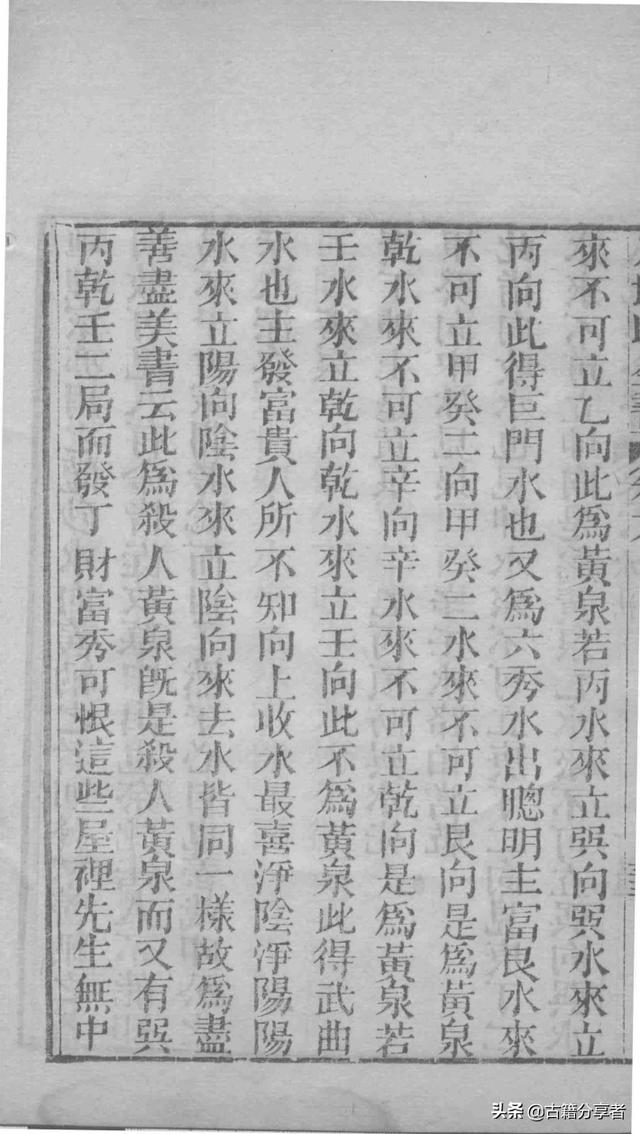 來不可立乙向此為黃泉若丙水來立巽向巽水來立
丙向此得巨門水也又為六秀水出聰明主富艮水來
不可立甲癸二向甲癸二水來不可立艮向是為黃泉
乾水來不可立辛向辛水來不可立乾向是為黃泉若
壬水來立乾向乾水來立壬向此不為黃泉此得武曲
水也主發富貴人所不知向上收水最喜淨陰淨陽陽
水來立陽向陰水來立陰向來去水皆同一樣故為盡
善盡美書云此為殺人黃泉既是殺人黃泉而又有巽
丙乾壬二局而發丁財富秀可恨這些屋裡先生無中
头条 @古籍分享者